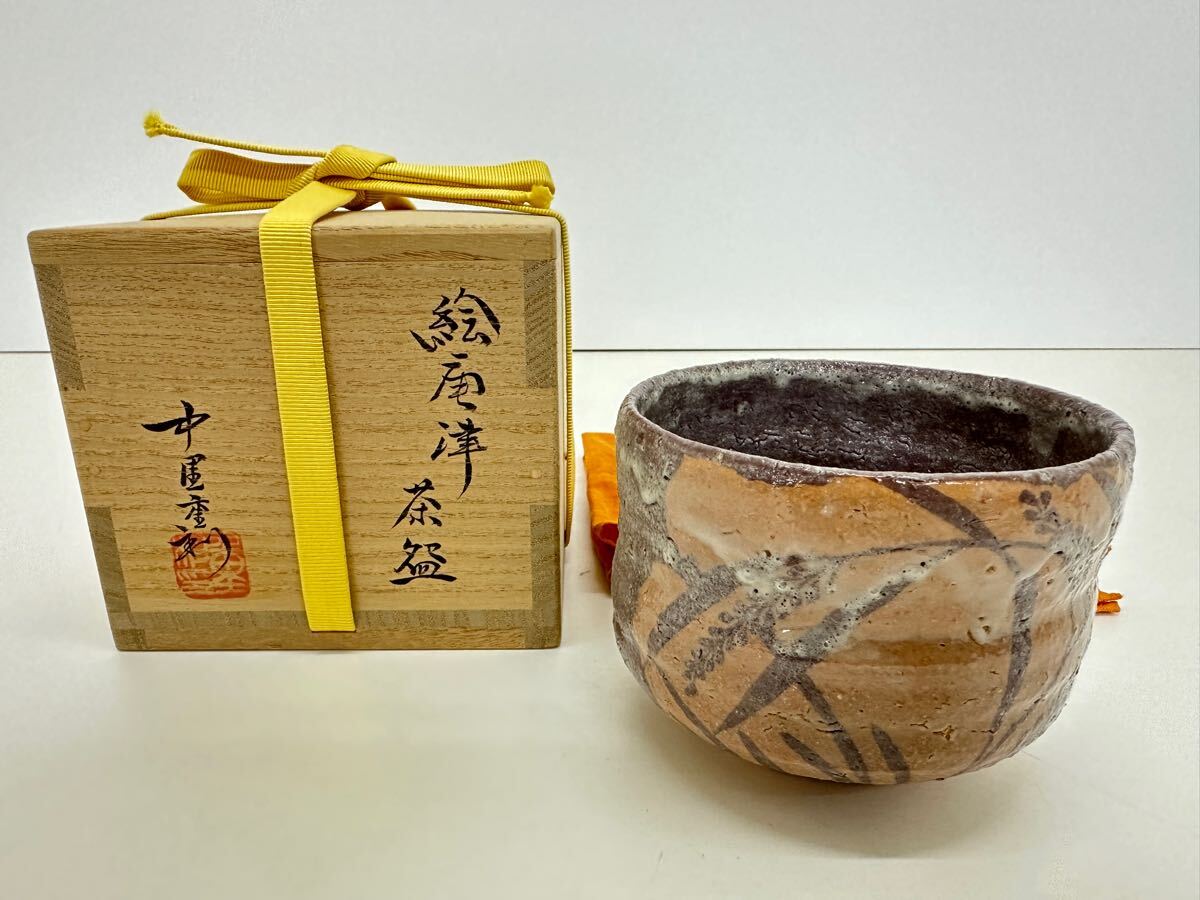 絵唐津
茶盌
中里重利